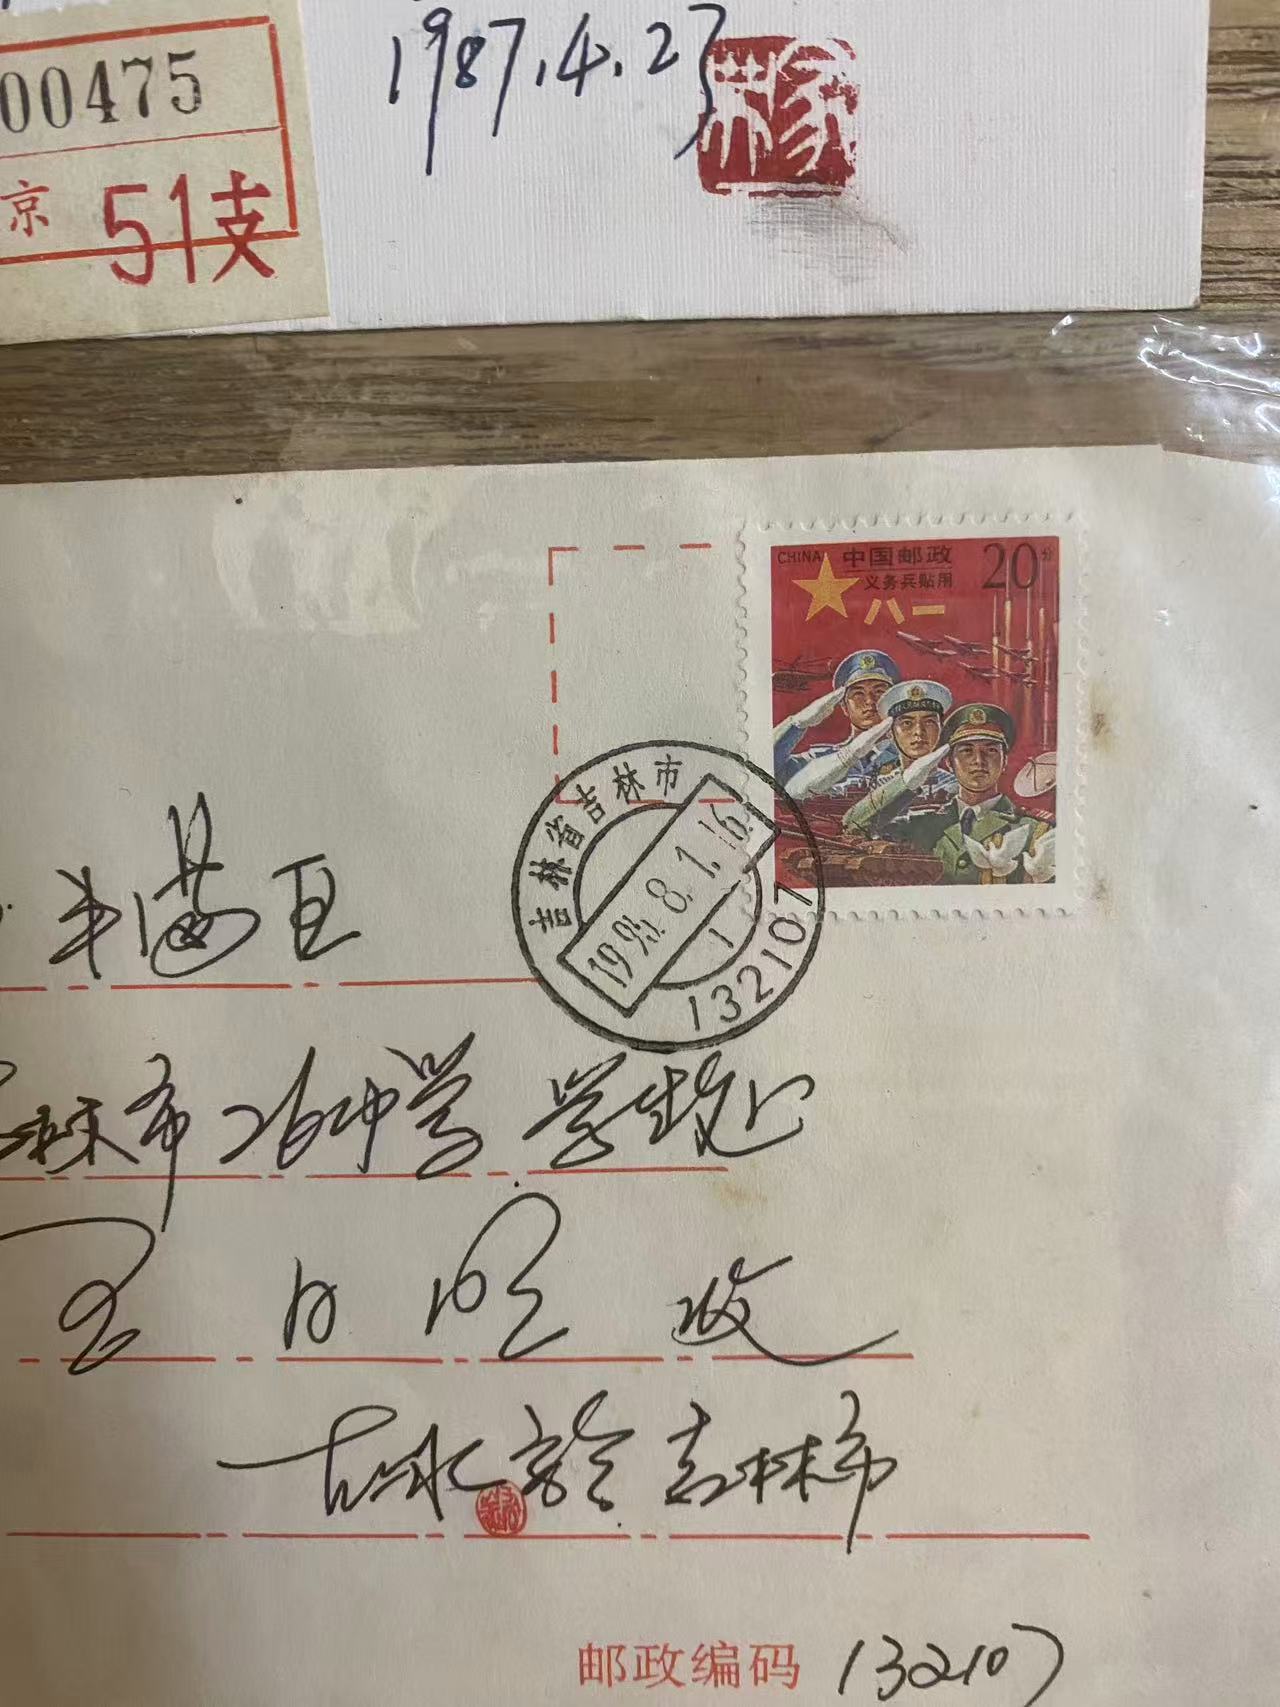 00475
京 51支
1987.4.23
CHINA 中国邮政 20分
义务兵贴用
八一
吉林省吉林市
1995.8.1.16
1
132107
丰满区
林市26中学 学生
王 日 明 收
吉林市
邮政编码 132107